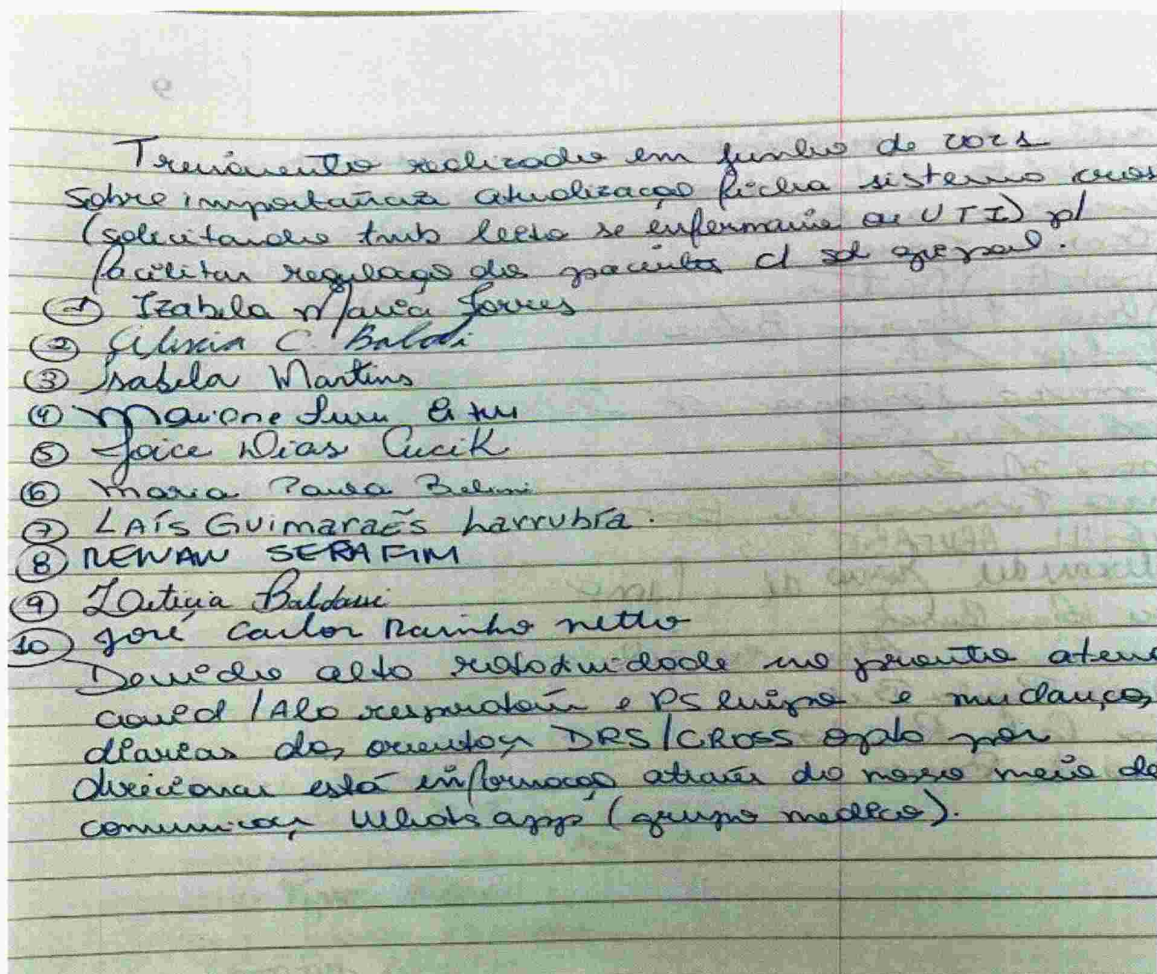 Treinamento realizado em junho de 2021
sobre importância atualização ficha sistema cross
(solicitando tmb leito se enfermaria ou UTI) p/
facilitar regulação dos pacientes c/
① Izabela Maria Torres
② C. Baldi
③ Isabela Martins
④
⑤ Joice Dias Cucik
⑥ Maria Paula Belini
⑦ LAÍS GUIMARAẼS Larrubia.
⑧ RENAN SERAFIM
⑨ Letícia Baldassi
10 José Carlos Rainho netto
Devido alto rotatividade no pronto aten
covid / Ala respiratóri e PS e mudanças
diarias das DRS/CROSS opto por
direcionar está informação através do nosso meio de
comunicaç Whats app (grupo medico).